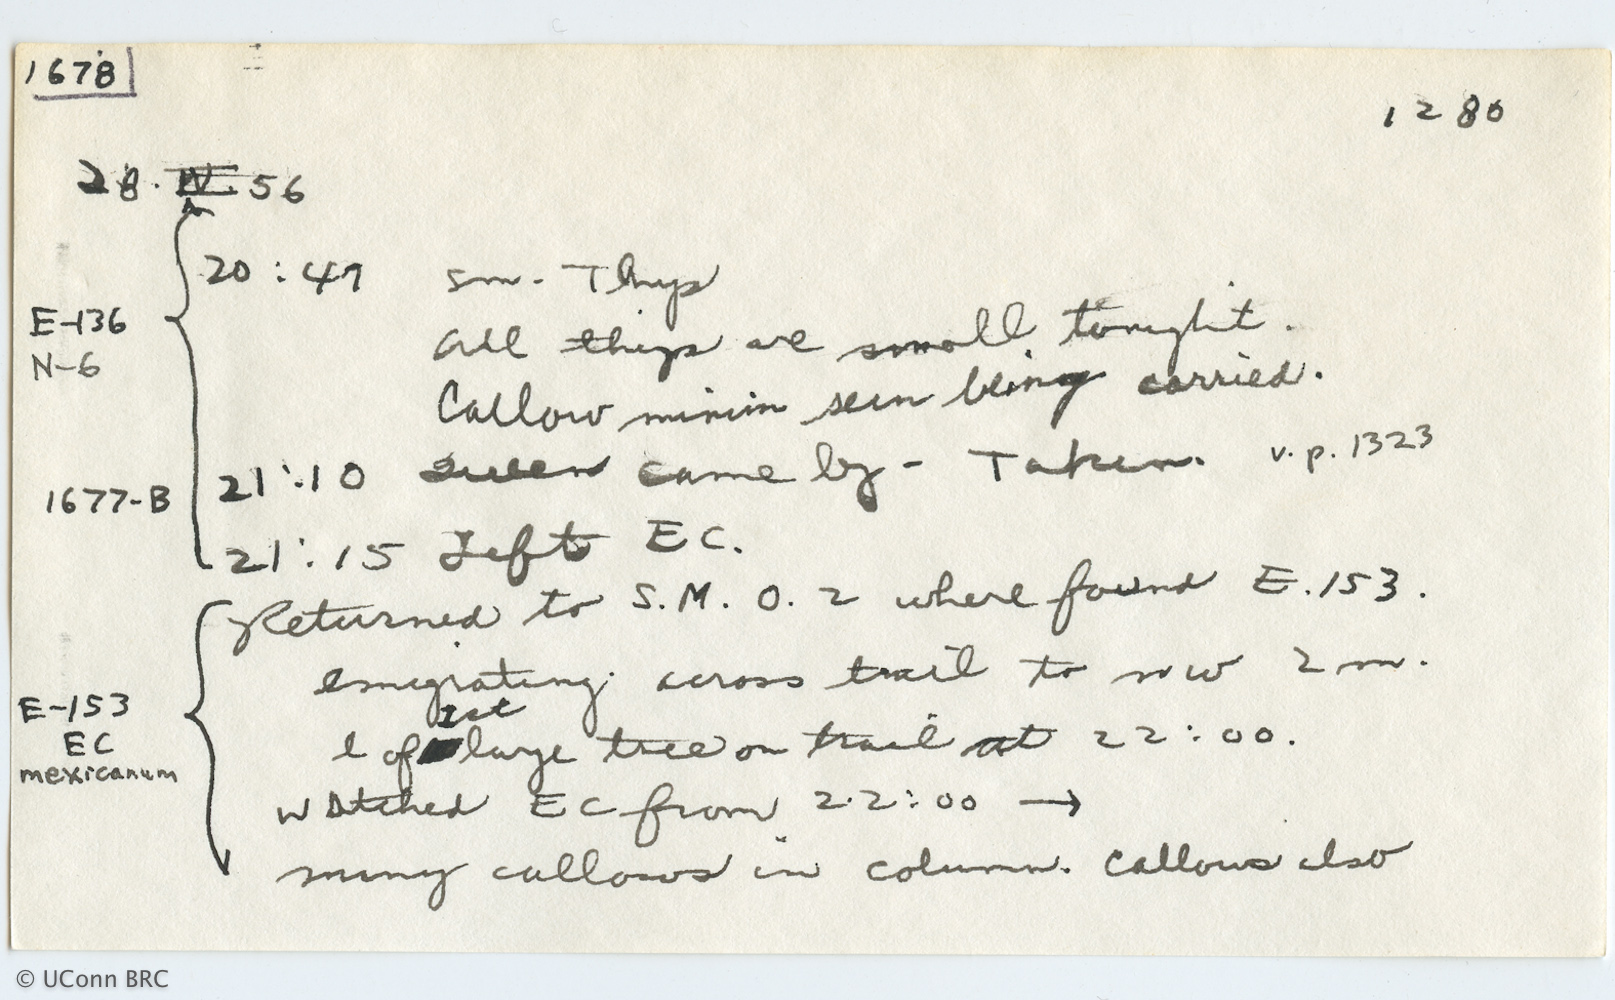 1678
1280
28.IV.56
20:47 sm. Thysp
all thysp are small tonight.
E-136
N-6
Callow minim seen being carried.
21:10 Queen came by - Taken. v.p. 1323
1677-B
21:15 Left EC.
Returned to S.M.O.2 where found E.153.
emigrating across trail to NW 2 m.
E-153
EC
mexicanum
1st
E of large tree on trail at 22:00.
Watched EC from 22:00 →
many callows in column. Callows also
© UConn BRC